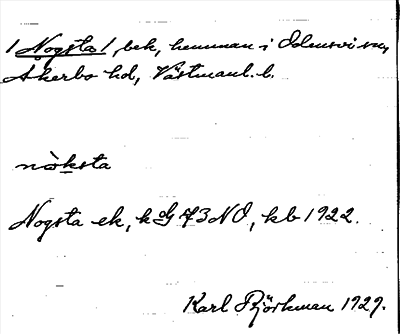 /Nogsta/, bek, hemman i Odensvi sn,
Åkerbo hd, Västmanl. l.
nòksta
Nogsta ek, k G 73 NO, kb 1922.
Karl Björkman 1929.